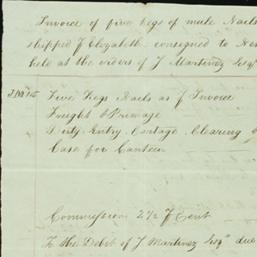 Invoice of five kegs of mule Nails
shipped p Elizabeth consigned to
held at the orders of J Martinez Esqr
Five Kegs Nails as p Invoice
Freight & Primage
Duty Entry Cartage Clearing
Case for Canteen
Commission 2½ p Cent
To the Debit of J Martinez Esqr due